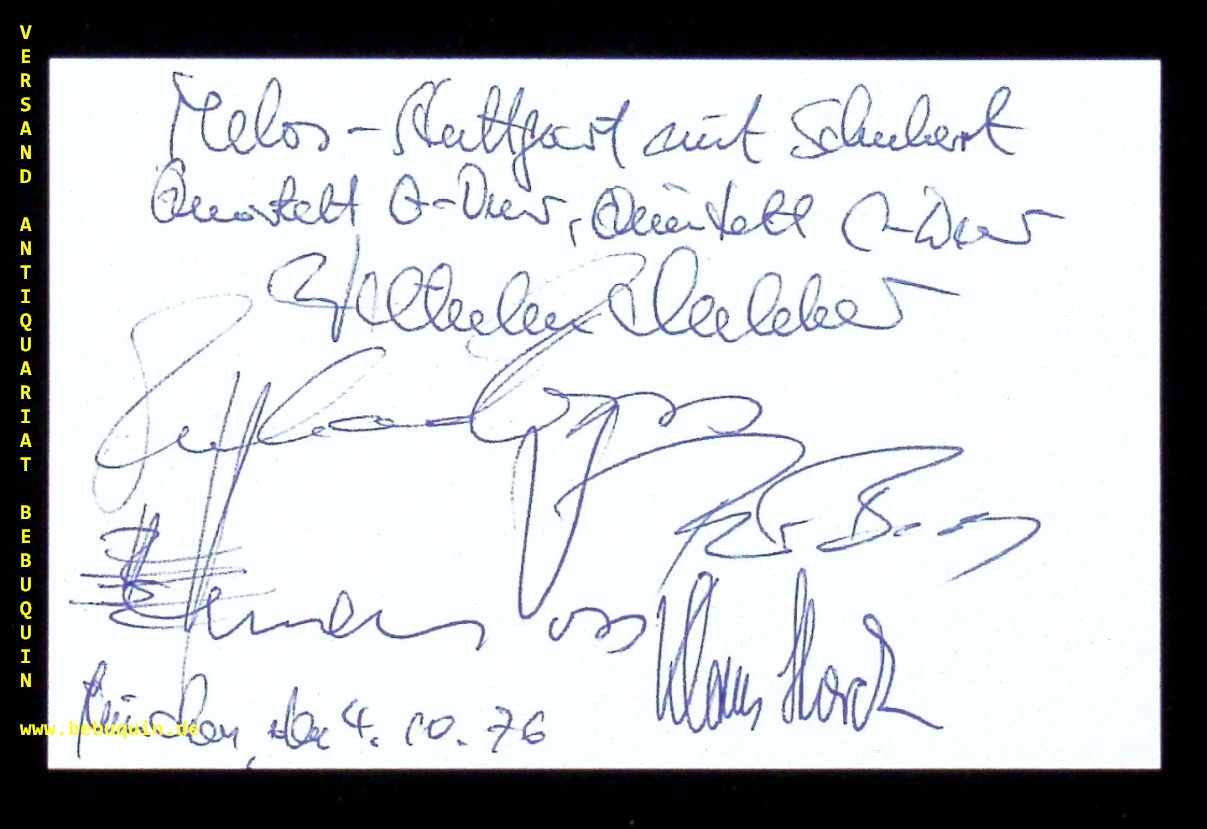 VERSAND ANTIQUARIAT BEBUQUIN
www.bebuquin.de
Melos-Stuttgart mit Schubert
Quartett G-Dur, Quintett C-Dur
Wilhelm Melcher
Klaus Storck
München, den 4. 10. 76